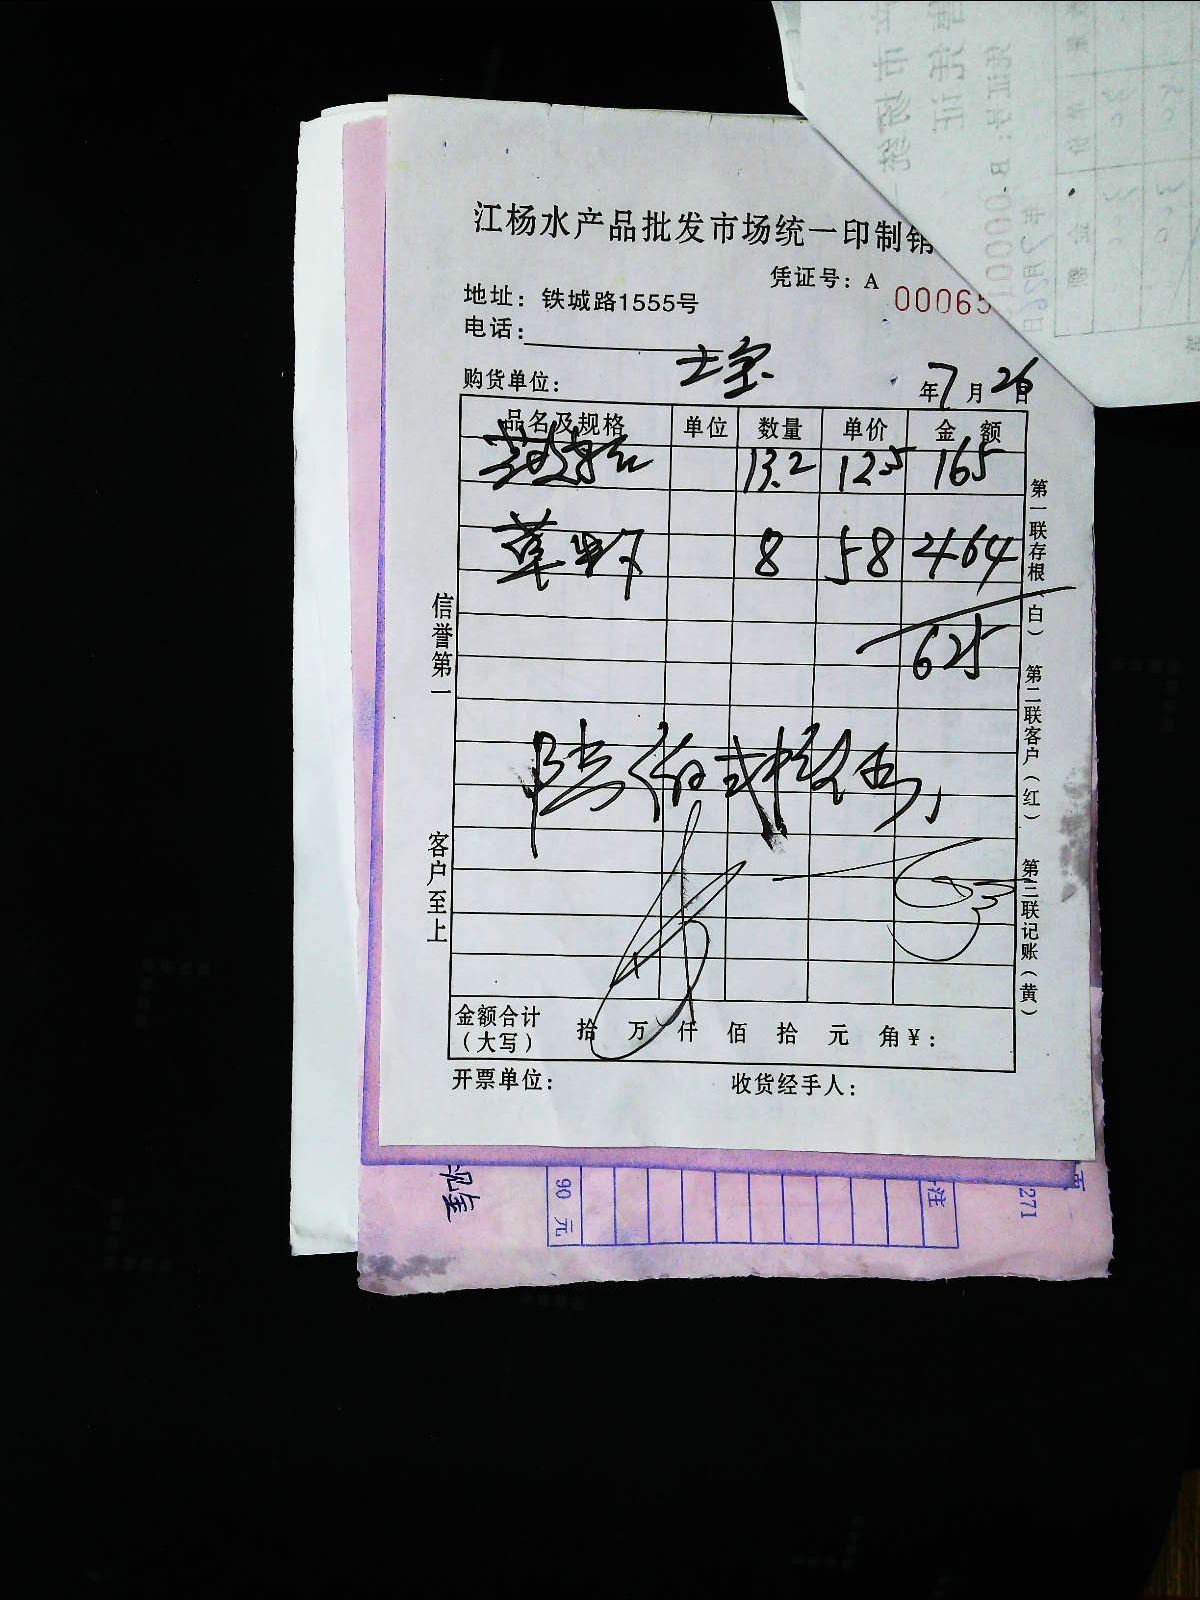 江杨水产品批发市场统一印制销
凭证号：A 00065
地址：铁城路1555号
电话：
购货单位： 士宝 年7月26日
品名及规格 单位 数量 单价 金额
13.2 12.5 165
草虾 8 58 464
625
陆佰弍拾伍
金额合计（大写） 拾 万 仟 佰 拾 元 角 ¥：
开票单位： 收货经手人：
信誉第一
客户至上
第一联存根（白） 第二联客户（红） 第三联记账（黄）
90 元
271